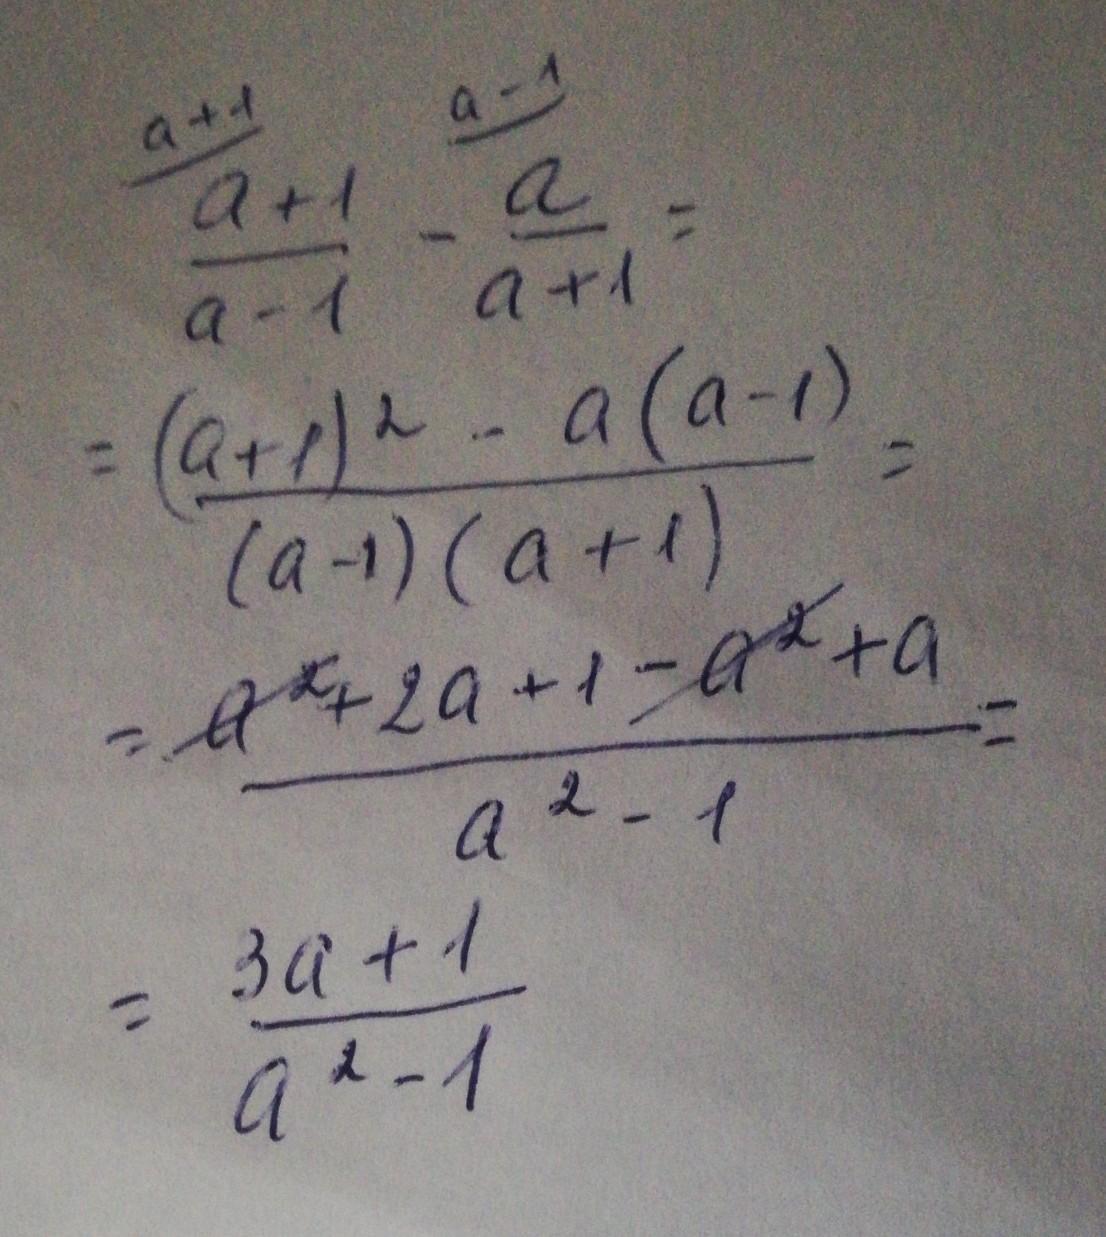 a+1 a-1
(a+1)/(a-1) - a/(a+1) =
= ((a+1)² - a(a-1))/((a-1)(a+1)) =
= (a²+2a+1-a²+a)/(a²-1) =
= (3a+1)/(a²-1)